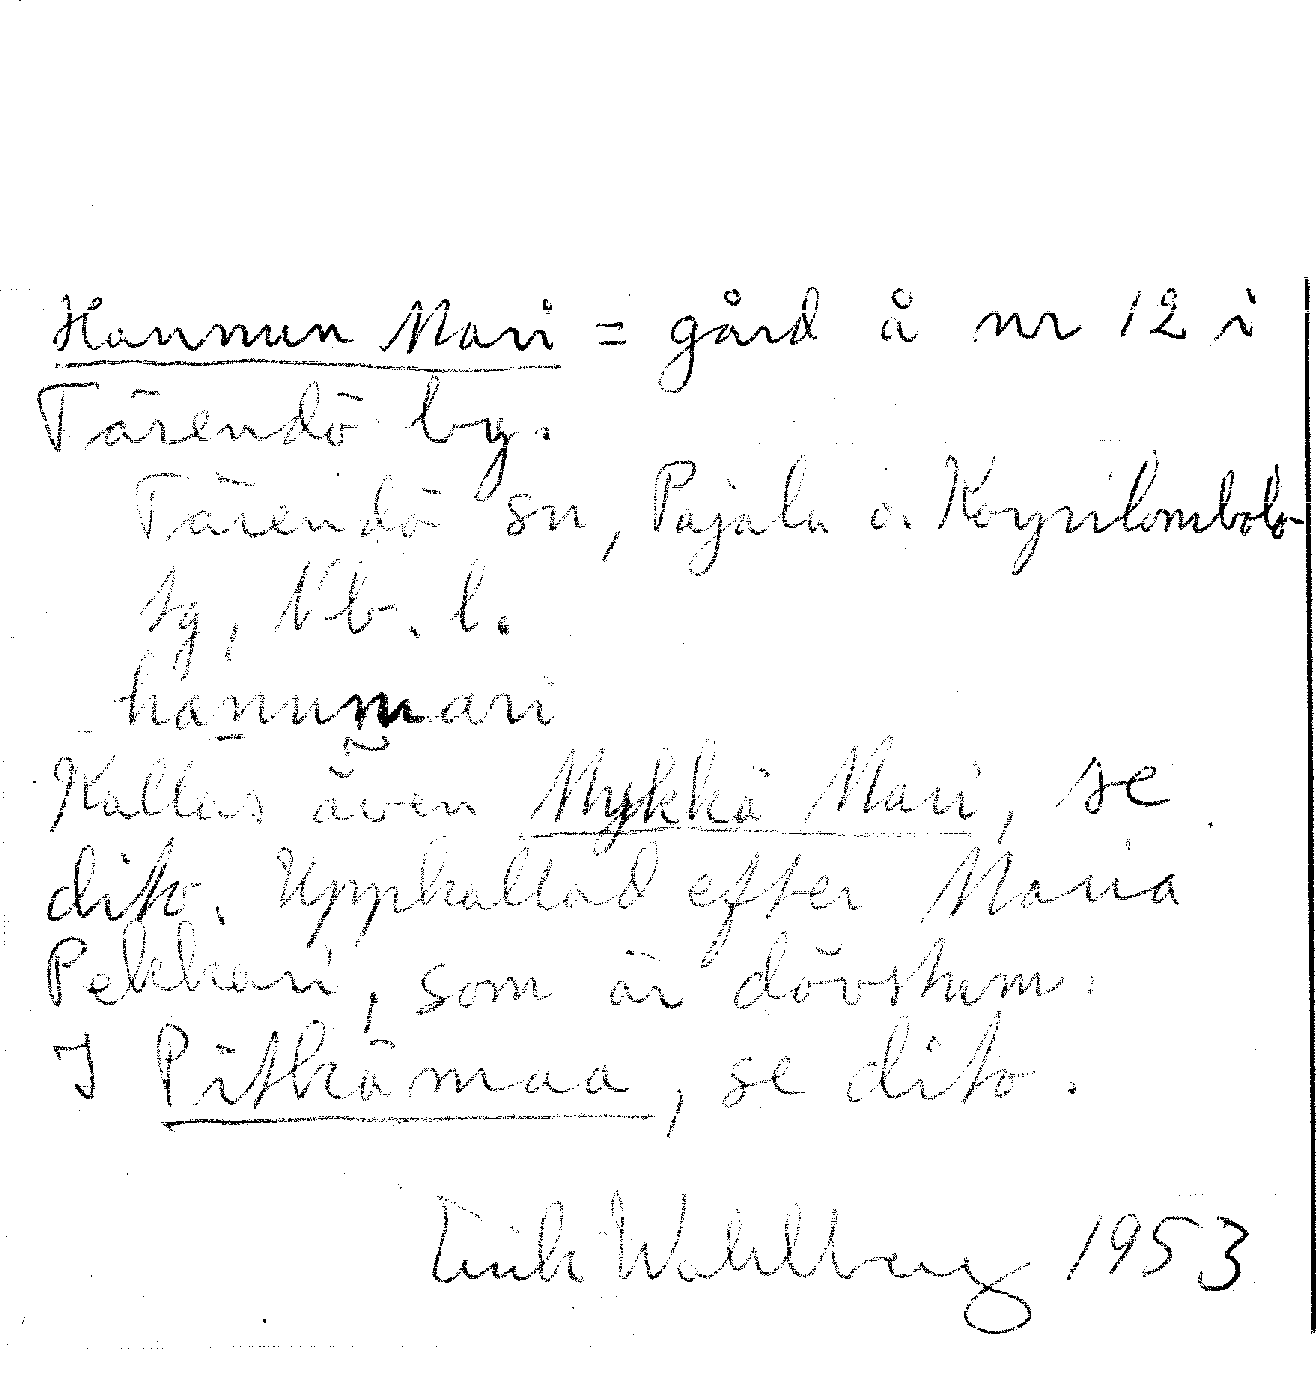 Hannun Mari = gård å nr 12 i
Tärendö by.
Tärendö sn, Pajala o. Korpilombolo
tg, Nb. l.
hanumari
Kallas även Mykkä Mari, se
dito. Uppkallad efter Maria
Pekkari, som är dövstum.
I Pitkämaa, se dito.
Erik Wahlberg 1953